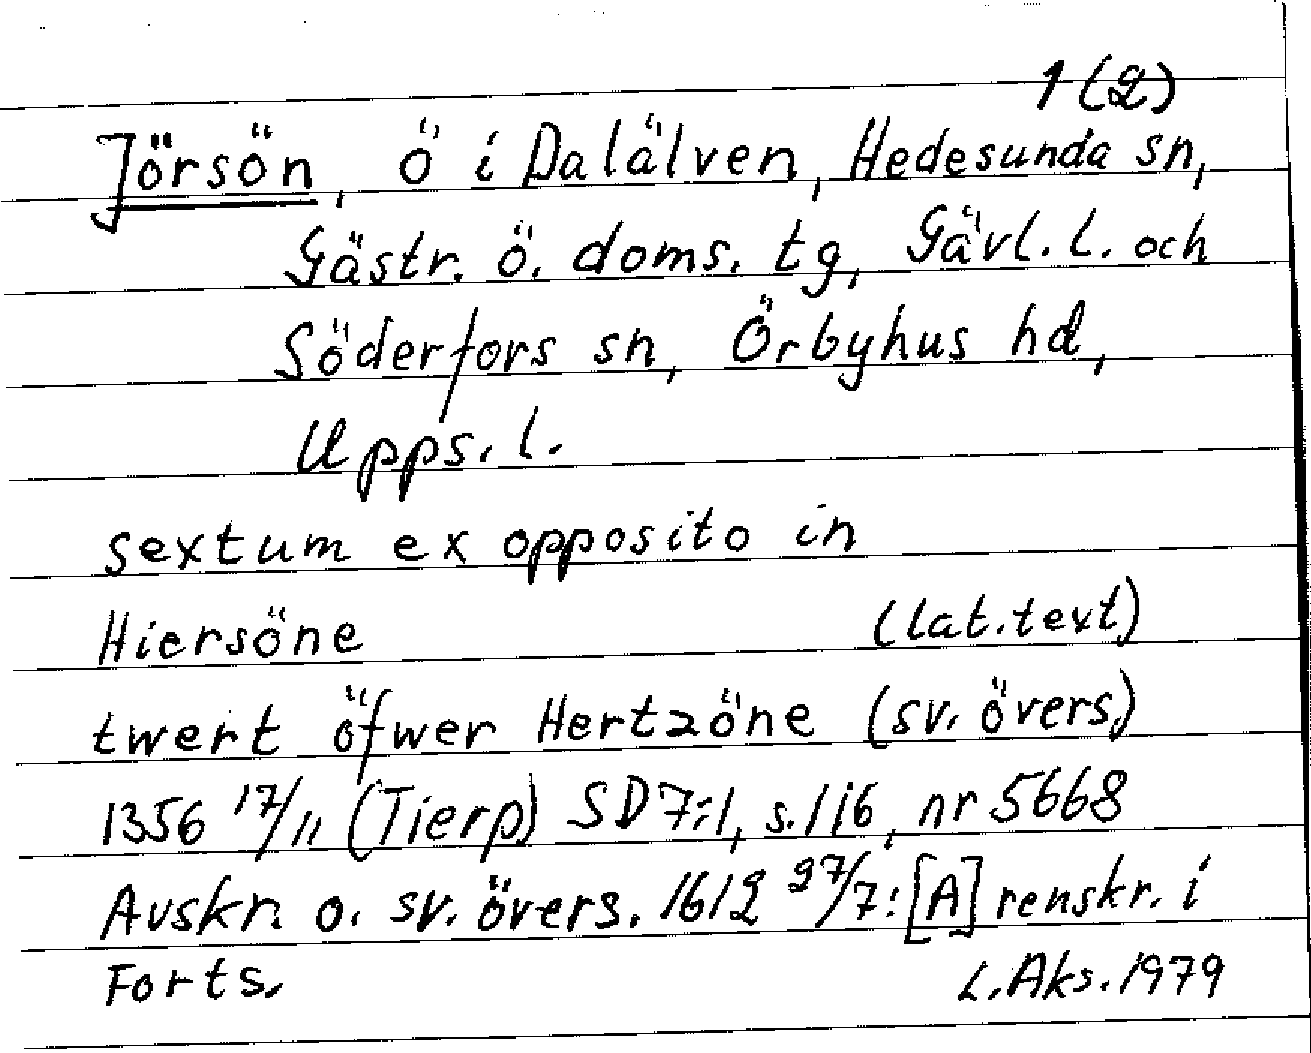 1 (2)
Jörsön, ö i Dalälven, Hedesunda sn,
Gästr. ö. doms. tg, Gävl. l. och
Söderfors sn, Örbyhus hd,
Upps. l.
sextum ex opposito in
Hiersöne (lat. text)
twert öfwer Hertzöne (sv. övers.)
1356 17/11 (Tierp) SD 7:1, s. 116, nr 5668
Avskr. o. sv. övers. 1612 27/7: [A] renskr. i
Forts. L. Aks. 1979